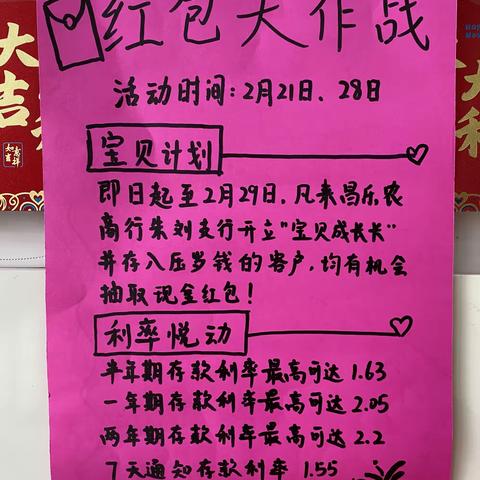 红包大作战
活动时间:2月21日、28日
宝贝计划
即日起至2月29日,凡来昌乐农
商行朱刘支行开立"宝贝成长卡"
并存入压岁钱的客户,均有机会
抽取现金红包!
利率悦动
半年期存款利率最高可达 1.63
一年期存款利率最高可达 2.05
两年期存款利率最高可达 2.2
7天通知存款利率 1.55
大吉
大利
吉祥如意